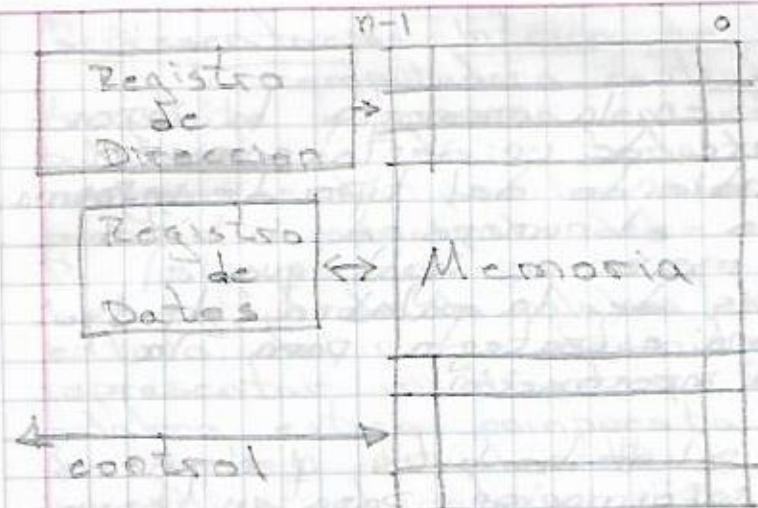 n-1 0
Registro
de
Direccion
Registro
de
Datos
Memoria
control